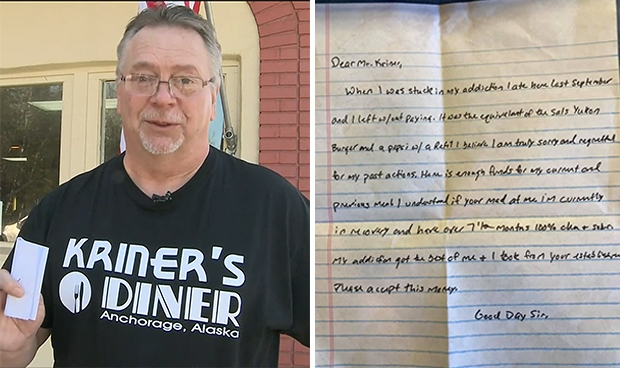 KRINER'S
DINER
Anchorage, Alaska
Dear Mr. Kriner,
When I was stuck in my addiction I ate here last September
and I left w/out paying. It was the equivalent of the Sals Yukon
Burger and a pepsi w/ a Refil I believe. I am truly sorry and regretful
for my past actions. Here is enough funds for my current and
previous meal I understand if your mad at me im currently
in recovery and have over 7 1/2 months 100% clean + sober
My addiction got the best of me + I took from your
Please accept this money.
Good Day Sir,